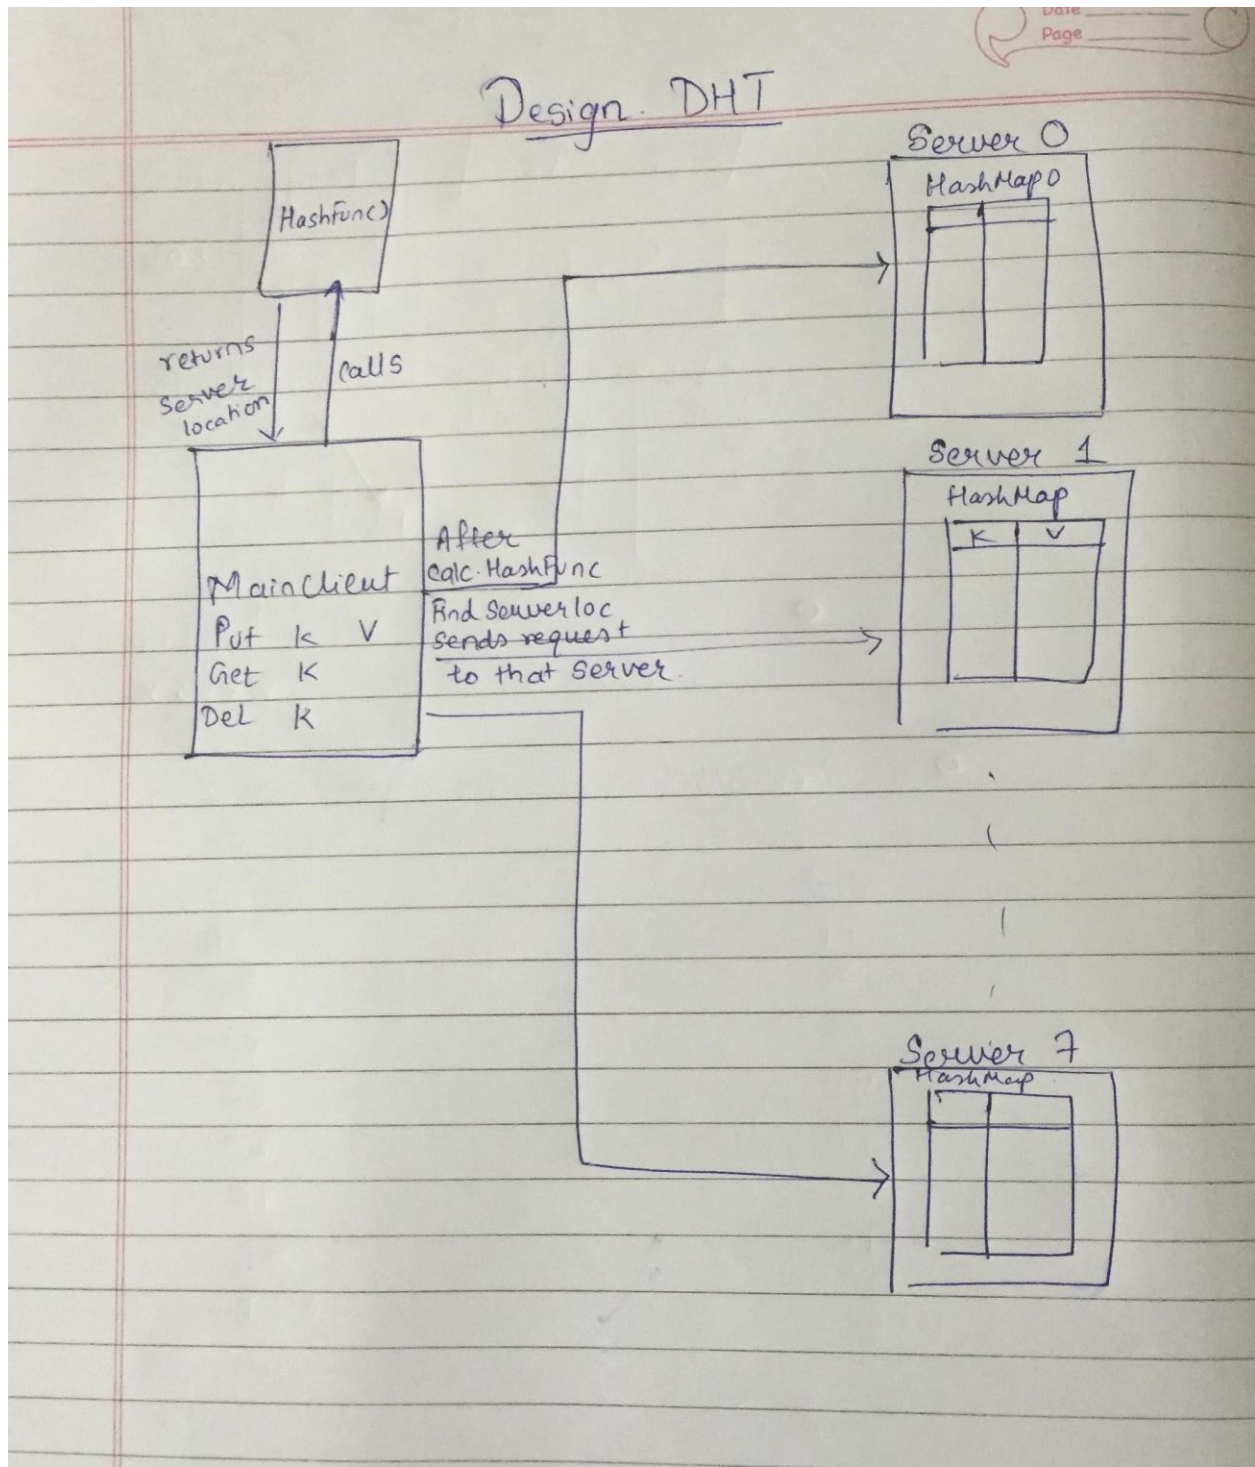 Date
Page
Design. DHT
HashFunc)
returns
server
location
calls
MainClient
Put K V
Get K
Del K
After
calc. HashFunc
Find Serverloc
sends request
to that Server.
Server 0
HashMap 0
Server 1
HashMap
K V
Server 7
HashMap